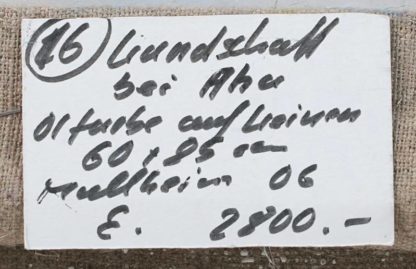 16 Landschaft
bei Ahn
Ölfarbe auf Leinen
60 x 85 cm
Müllheim 06
E. 2800.-